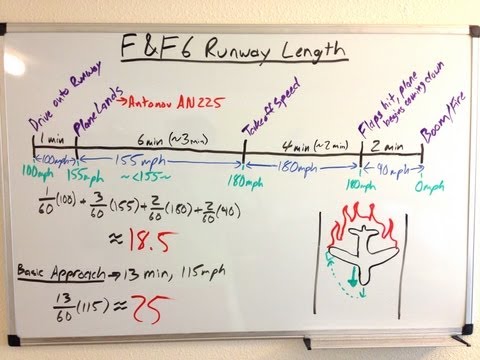 F&F6 Runway Length
Drive onto Runway
Plane Lands
→ Antonov AN225
Takeoff Speed
Flaps hit, plane
begins coming down
Boom/Fire
1 min
6 min (~3min)
4 min (~2min)
2 min
100mph
155mph
180mph
40mph
100mph
155mph
~<155~
180mph
180mph
0mph
1/60 (100) + 3/60 (155) + 2/60 (180) + 2/60 (40)
≈ 18.5
Basic Approach → 13 min, 115mph
13/60 (115) ≈ 25